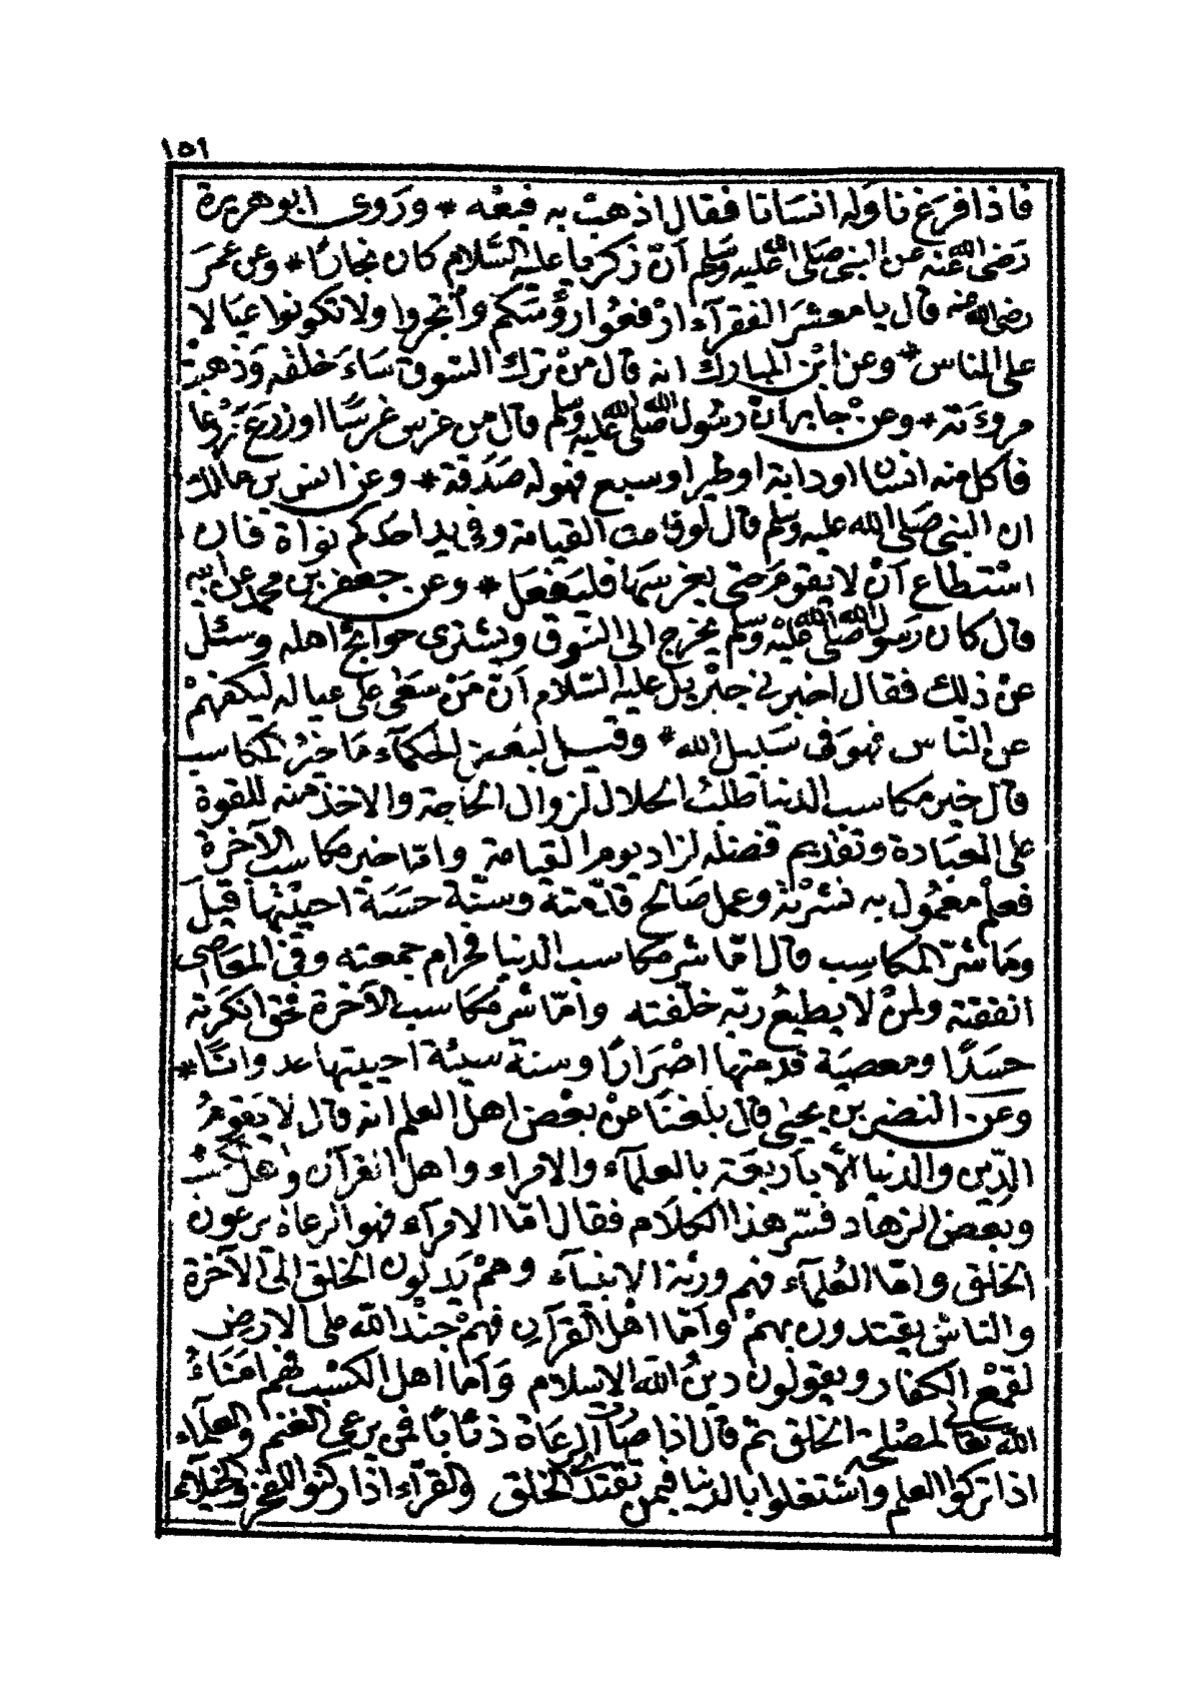 ١٥٦
فاذا فرغ ناوله انسانا فقال اذهب به فبعه * وروى ابو هريرة
رضى الله عنه عن النبى صلى الله عليه وسلم أنّ زكريا عليه السّلام كان نجارًا * وعن عمر
رضى الله عنه قال يا معشر الفقرآء ارفعوا رؤسكم وأتجروا ولا تكونوا عيالا
على الناس * وعن ابن المبارك انه قال من ترك السوق ساء خلقه وذهبت
مروءته * وعن جابر أن رسول الله صلى الله عليه وسلم قال من غرس غرسًا او زرع زرعا
فأكل منه انسان او دابة او طير او سبع فهو له صدقة * وعن انس بن مالك
ان النبى صلى الله عليه وسلم قال لو قامت القيامة وفى يد احدكم نواة فان
استطاع أن لا يقوم حتى يغرسها فليفعل * وعن جعفر بن محمد عن ابيه
قال كان رسول الله صلى الله عليه وسلم يخرج الى السّوق ويشترى حوايج اهله وسئل
عن ذلك فقال اخبرنى جبريل عليه السّلام أنّ من سعى على عياله ليكفهم
عن النّاس فهو فى سبيل الله * وقيل لبعض الحكمآء ما خير المكاسب
قال خير مكاسب الدنيا طلب الحلال لزوال الحاجة والاخذ منه للقوة
على العبادة وتقديم فضله لزاد يوم القيامة وامّا خير مكاسب الآخرة
فعلم معمول به نشرته وعمل صالح قدّمته وسنّة حسنة احييتها قيل
وما شرّ المكاسب قال امّا شر مكاسب الدنيا فحرام جمعته وفى المعاصى
انفقته ولمن لا يطيع ربّه خلّفته وأمّا شر مكاسب الآخرة فحق انكرته
حسدًا ومعصية قدمتها اضرارًا وسنة سيئة احييتها عدوانًا *
وعن النضر بن يحيى قال بلغنا عن بعض اهل العلم انه قال لا يقوم
الدّين والدنيا الّا بأربعة بالعلمآء والامراء واهل القرآن واهل الكسب
وبعض الزهاد فسّر هذا الكلام فقال امّا الامرآء فهو الرعاة يرعون
الخلق وامّا العلمآء فهم ورثة الانبيآء وهم يدلون الخلق الى الآخرة
والناس يقتدون بهم وأمّا اهل القرآن فهم جند الله على الارض
لقمع الكفار ويقولون دين الله الاسلام وأمّا اهل الكسب فهم امناء
الله تعالى لمصلحة الخلق ثم قال اذا صار الرعاة ذئابًا فمن يرعى الغنم والعلماء
اذا تركوا العلم واشتغلوا بالدنيا فبمن تقتدى الخلق والقرآء اذا ركبوا للفخر والخيلاء